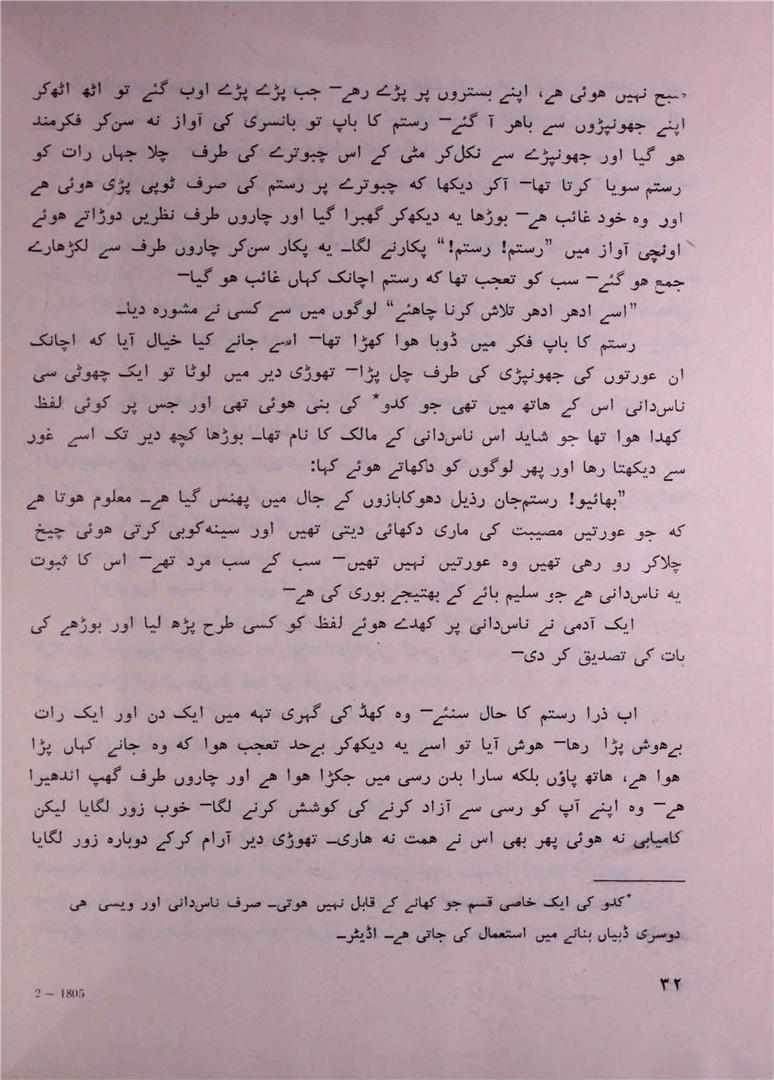 صبح نہیں ہوئی ہے، اپنے بستروں پر پڑے رہے— جب پڑے پڑے اوب گئے تو اٹھ اٹھ‌کر
اپنے جھونپڑوں سے باہر آ گئے— رستم کا باپ تو بانسری کی آواز نہ سن‌کر فکرمند
ہو گیا اور جھونپڑے سے نکل‌کر مٹی کے اس چبوترے کی طرف چلا جہاں رات کو
رستم سویا کرتا تھا— آکر دیکھا کہ چبوترے پر رستم کی صرف ٹوپی پڑی ہوئی ہے
اور وہ خود غائب ہے— بوڑھا یہ دیکھ‌کر گھبرا گیا اور چاروں طرف نظریں دوڑاتے ہوئے
اونچی آواز میں ”رستم! رستم!“ پکارنے لگا۔ یہ پکار سن‌کر چاروں طرف سے لکڑہارے
جمع ہو گئے— سب کو تعجب تھا کہ رستم اچانک کہاں غائب ہو گیا—
”اسے ادھر ادھر تلاش کرنا چاہئے“ لوگوں میں سے کسی نے مشورہ دیا۔
رستم کا باپ فکر میں ڈوبا ہوا کھڑا تھا— اسے جانے کیا خیال آیا کہ اچانک
ان عورتوں کی جھونپڑی کی طرف چل پڑا— تھوڑی دیر میں لوٹا تو ایک چھوٹی سی
ناس‌دانی اس کے ہاتھ میں تھی جو کدو* کی بنی ہوئی تھی اور جس پر کوئی لفظ
کھدا ہوا تھا جو شاید اس ناس‌دانی کے مالک کا نام تھا۔ بوڑھا کچھ دیر تک اسے غور
سے دیکھتا رہا اور پھر لوگوں کو دکھاتے ہوئے کہا:
”بھائیو! رستم‌جان رذیل دھوکابازوں کے جال میں پھنس گیا ہے۔ معلوم ہوتا ہے
کہ جو عورتیں مصیبت کی ماری دکھائی دیتی تھیں اور سینہ‌کوبی کرتی ہوئی چیخ
چلاکر رو رہی تھیں وہ عورتیں نہیں تھیں— سب کے سب مرد تھے— اس کا ثبوت
یہ ناس‌دانی ہے جو سلیم بائے کے بھتیجے بوری کی ہے—
ایک آدمی نے ناس‌دانی پر کھدے ہوئے لفظ کو کسی طرح پڑھ لیا اور بوڑھے کی
بات کی تصدیق کر دی—
اب ذرا رستم کا حال سنئے— وہ کھڈ کی گہری تہہ میں ایک دن اور ایک رات
بے‌ہوش پڑا رہا— ہوش آیا تو اسے یہ دیکھ‌کر بے‌حد تعجب ہوا کہ وہ جانے کہاں پڑا
ہوا ہے، ہاتھ پاؤں بلکہ سارا بدن رسی میں جکڑا ہوا ہے اور چاروں طرف گھپ اندھیرا
ہے— وہ اپنے آپ کو رسی سے آزاد کرنے کی کوشش کرنے لگا— خوب زور لگایا لیکن
کامیابی نہ ہوئی پھر بھی اس نے ہمت نہ ہاری۔ تھوڑی دیر آرام کرکے دوبارہ زور لگایا
*کدو کی ایک خاصی قسم جو کھانے کے قابل نہیں ہوتی۔ صرف ناس‌دانی اور ویسی ہی
دوسری ڈبیاں بنانے میں استعمال کی جاتی ہے۔ اڈیٹر۔
۳۲
2 — 1805